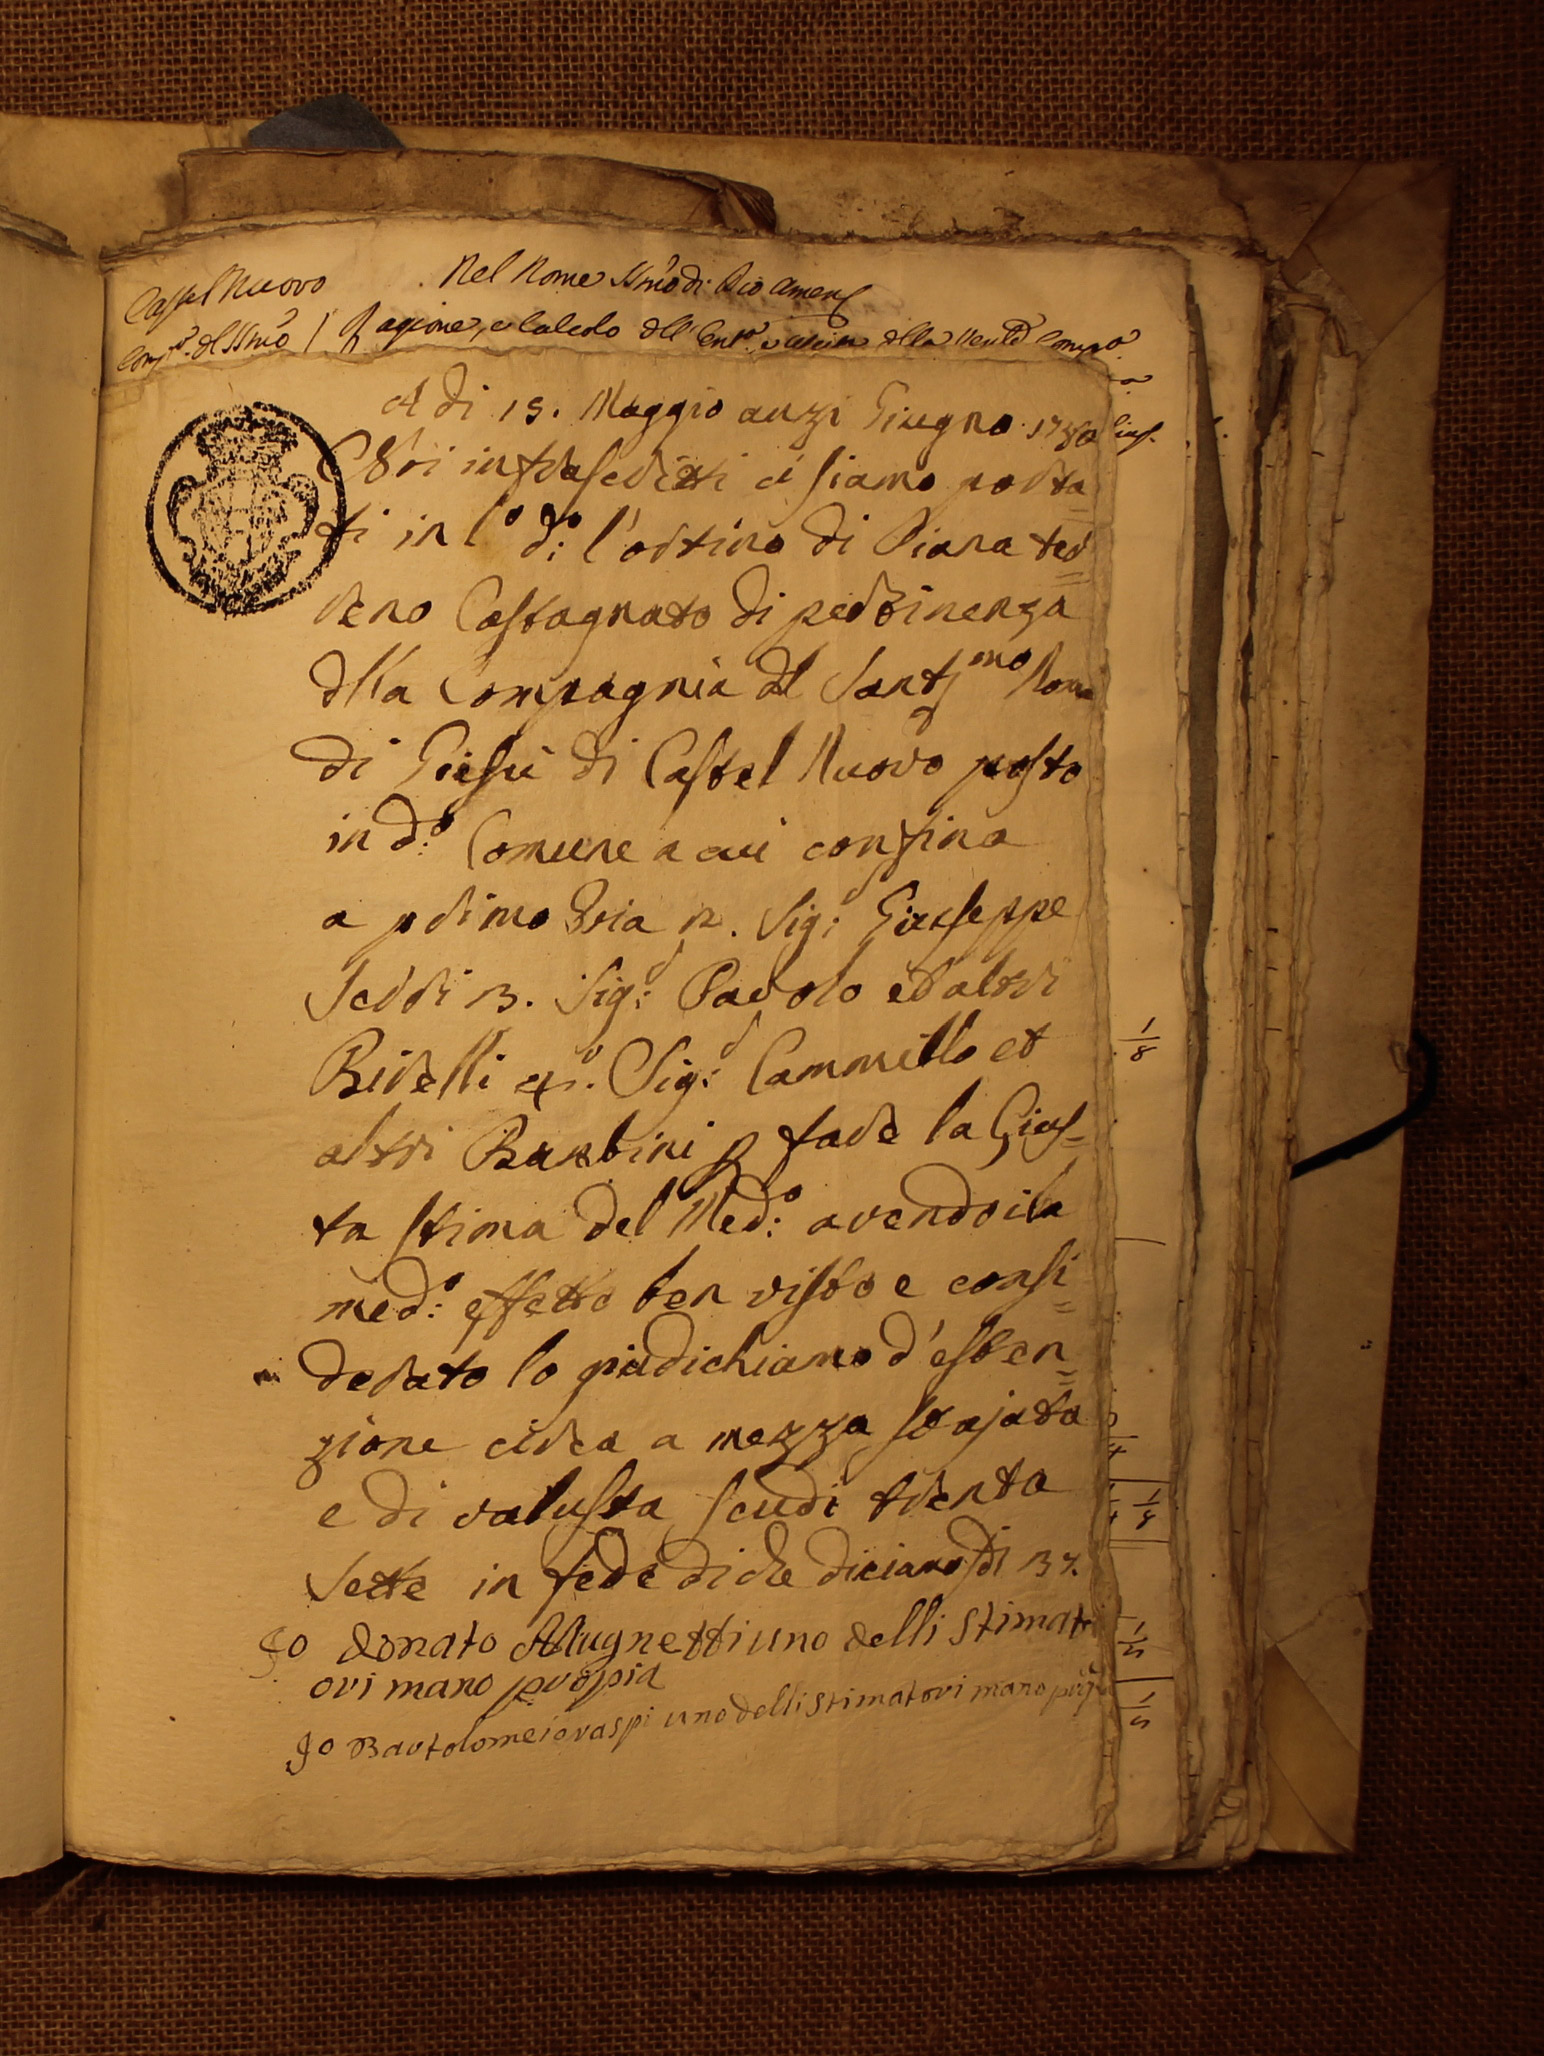 Castel Nuovo
Nel Nome SSmo di Dio Amen
Comp.a del SSmo
Ragione, e Calcolo dell' Entr.a e uscita della Ven.le Comp.a
A di 15. Maggio anzi Giugno 1730
Noi infrascritti ci siamo porta
ti in l.o d.o l'ortino di Piana ter
reno Castagnato di pertinenza
della Compagnia del Sant.mo Nome
di Giesù di Castel Nuovo posto
in d.o Comune a cui confina
a primo via 2. Sig.r Giuseppe
Serri 3. Sig.r Pavolo ed altri
Ridelli 4.o Sig.r Cammillo et
altri Barbini p fare la Gius-
ta stima del Med.o avendo il
med.o effetto ben visto e consi
derato lo giudichiamo d'esten
zione circa a mezza stajata
e di valusta scudi trenta
sette in fede di che diciamo di 37.
Io donato Mugnetti uno delli stimat
ori mano propia
Io Bartolomeio raspi uno delli stimatori mano
1/8
1/8
1/5
1/5